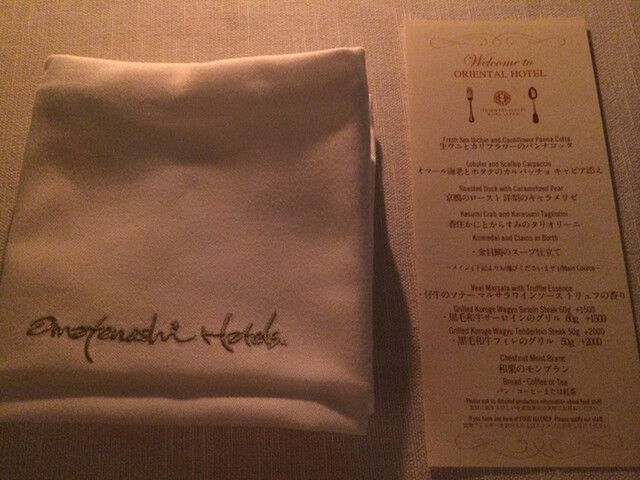 Omotenashi Hotels.
Welcome to
ORIENTAL HOTEL
Fresh Sea Urchin and Cauliflower Panna Cotta
生ウニとカリフラワーのパンナコッタ
Lobster and Scallop Carpaccio
オマール海老とホタテのカルパッチョ キャビア添え
Roasted Duck with Caramelized Pear
京鴨のロースト 洋梨のキャラメリゼ
Kasumi Crab and Karasumi Tagliolini
香住かにとからすみのタリオリーニ
Kinmedai and Clams in Broth
・金目鯛のスープ仕立て
～メイン (下記よりお選びくださいませ)/Main Course～
Veal Marsala with Truffle Essence
・仔牛のソテー マルサラワインソース トリュフの香り
Grilled Kuroge Wagyu Sirloin Steak 60g +1500
・黒毛和牛サーロインのグリル 60g +1500
Grilled Kuroge Wagyu Tenderloin Steak 50g +2000
・黒毛和牛フィレのグリル 50g +2000
Chestnut Mont Blanc
和栗のモンブラン
Bread・Coffee or Tea
パン・コーヒーまたは紅茶
Please ask us detailed production information about food stuff.
If you have any form of FOOD ALLERGY. Please notify our staff.